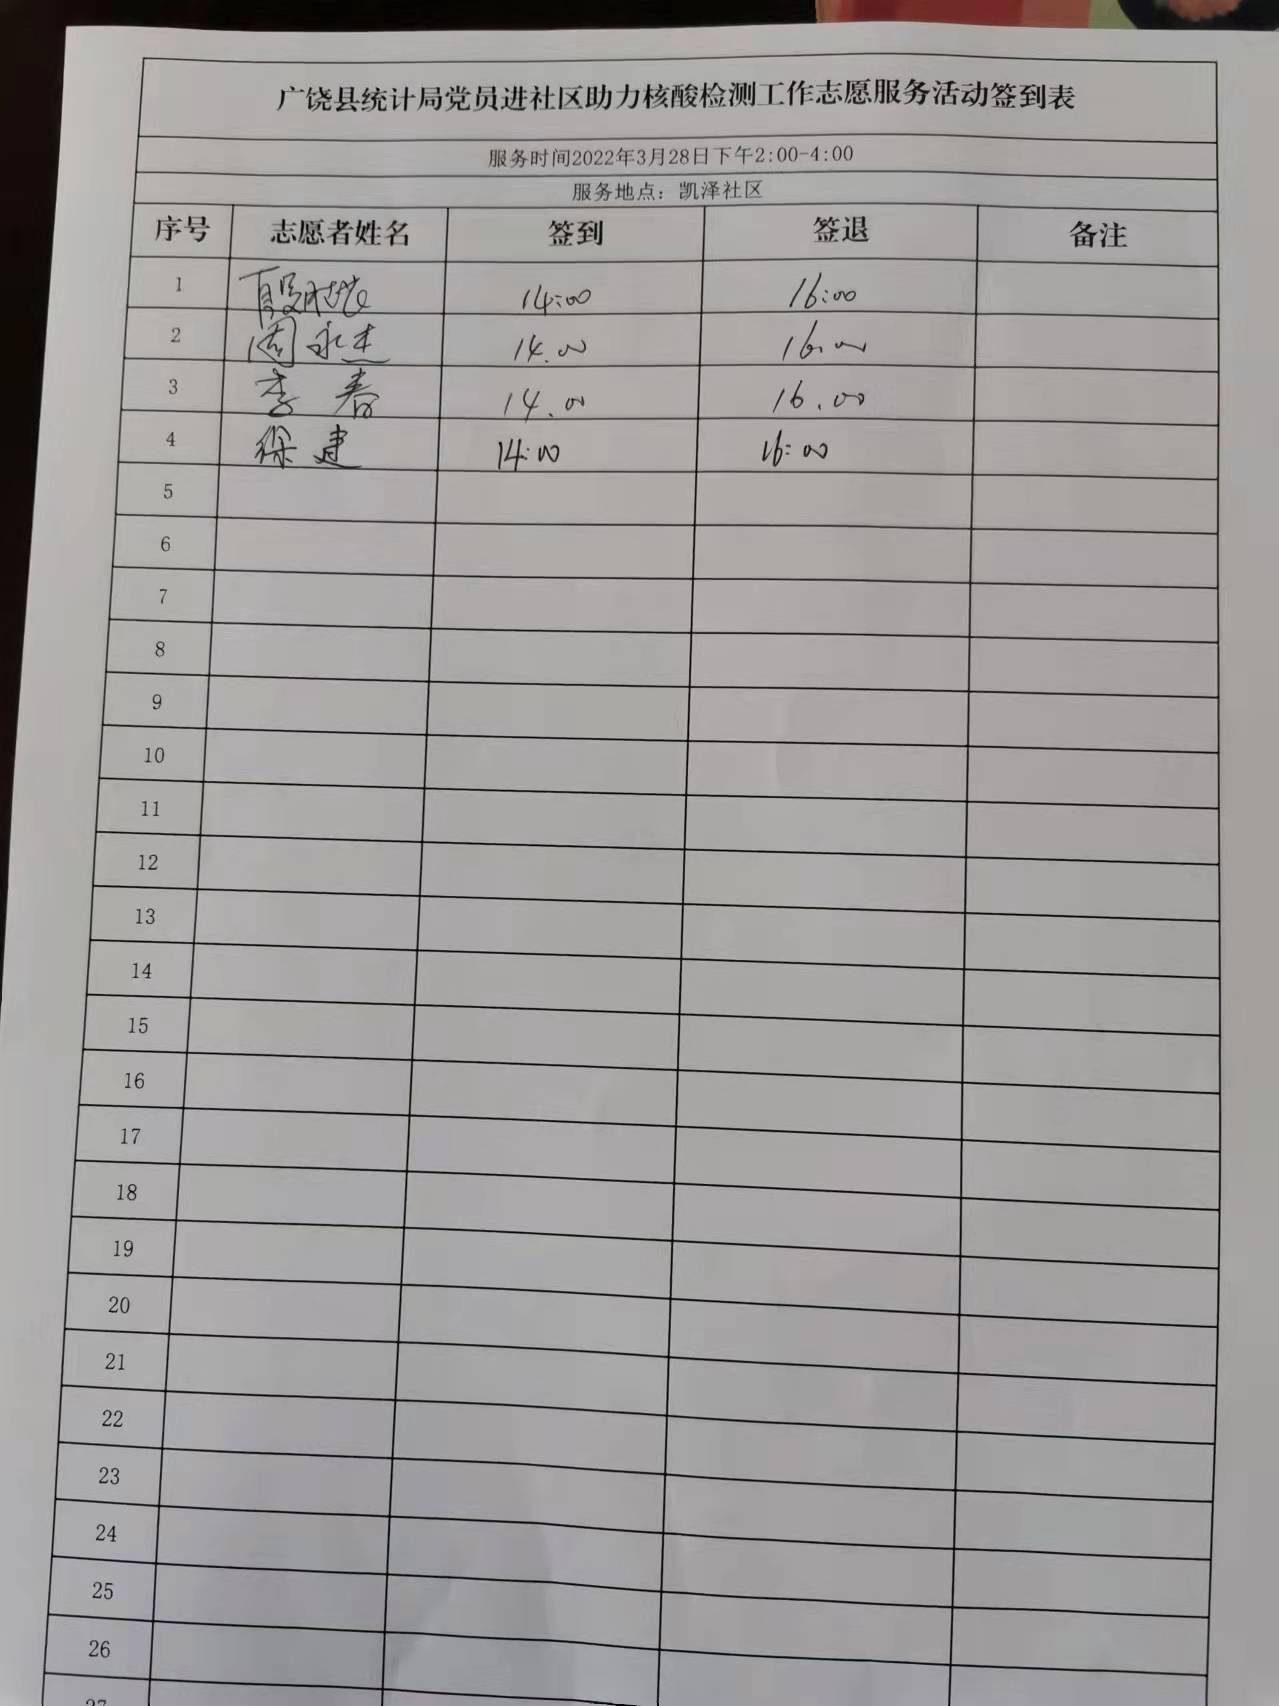 广饶县统计局党员进社区助力核酸检测工作志愿服务活动签到表
服务时间2022年3月28日下午2:00-4:00
服务地点：凯泽社区
序号 志愿者姓名 签到 签退 备注
1 14:00 16:00
2 周永杰 14.00 16.00
3 李春 14.00 16.00
4 徐建 14:00 16:00
5
6
7
8
9
10
11
12
13
14
15
16
17
18
19
20
21
22
23
24
25
26
27